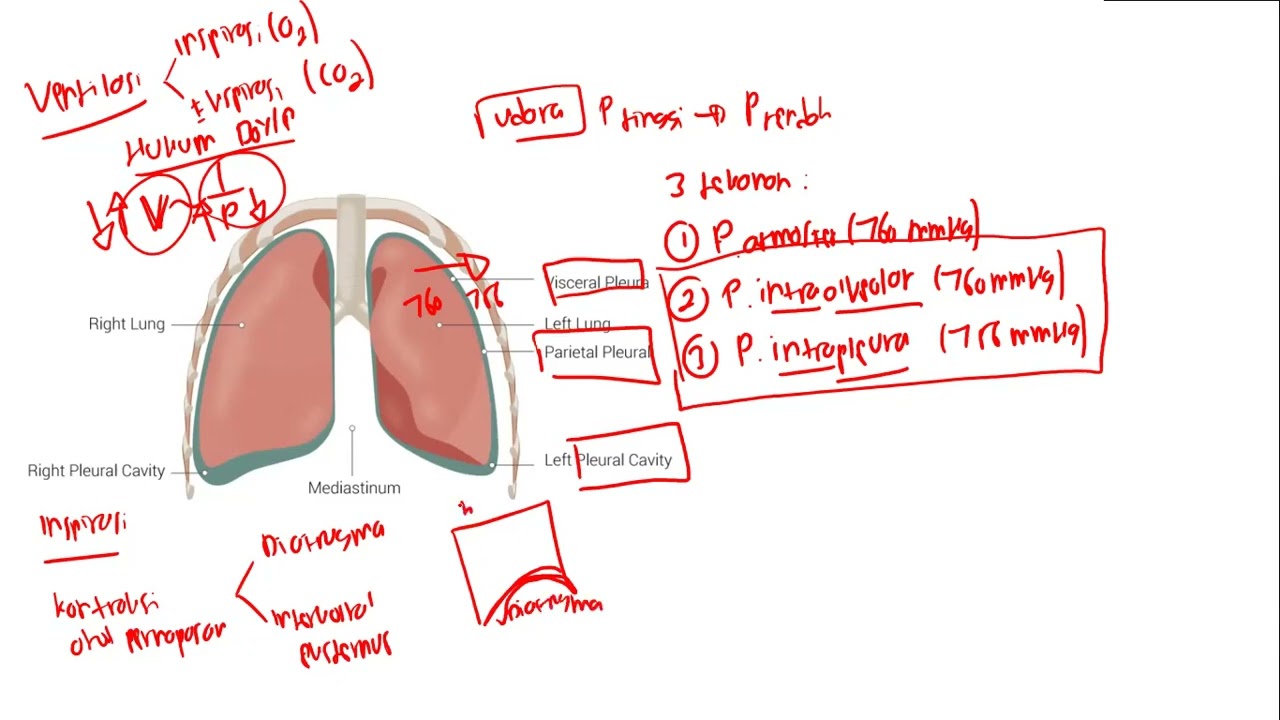 Ventilasi
inspirasi (O2)
Ekspirasi (CO2)
Hukum Boyle
V
1
P
Udara
P tinggi → P rendah
3 tekanan :
① P. atmosfer (760 mmHg)
② P. intraalveolar (760 mmHg)
③ P. intrapleura (756 mmHg)
760
756
Visceral Pleura
Right Lung
Left Lung
Parietal Pleural
Right Pleural Cavity
Left Pleural Cavity
Mediastinum
Inspirasi
kontraksi
otot pernapasan
Diafragma
intercostal
eksternus
diafragma